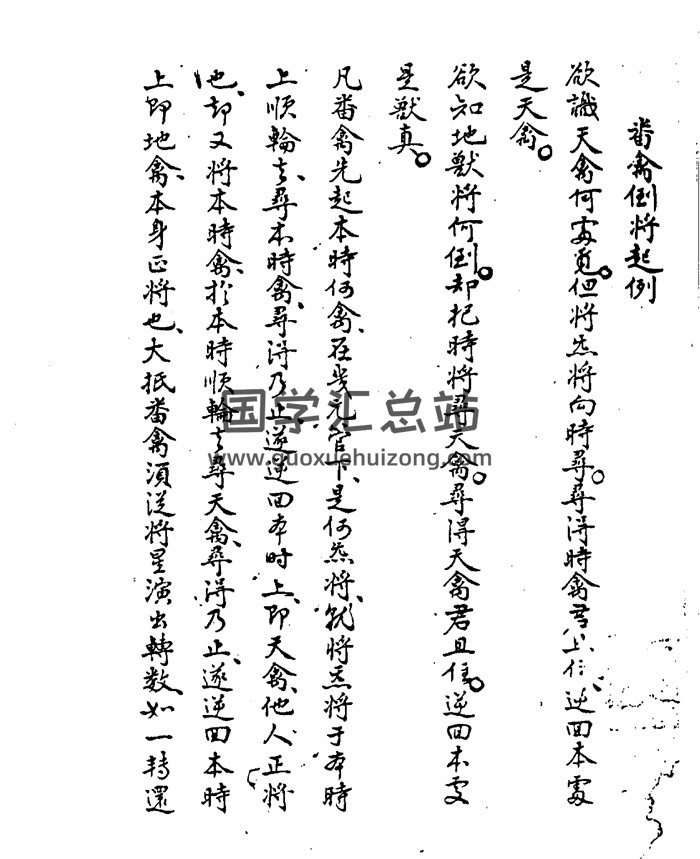 番禽倒將起例
欲識天禽何處覓。但將炁將向時尋。尋淂時禽君上住、逆回本處
是天禽。
欲知地獸將何倒。却把時將尋天禽。尋淂天禽君且住。逆回本支
是獸真。
凡番禽先起本時何禽、在㡬元管下、是何炁將、就將炁將于本時
上順輪去、尋本時禽、尋淂乃止、遂逆回本时上、即天禽、他人正將
也、却又將本時禽、於本時順輪去尋天禽、尋淂乃止、遂逆回本時
上即地禽、本身正將也、大抵番禽須從將星演出轉数、如一轉還
国学汇总站
www.guoxuehuizong.com